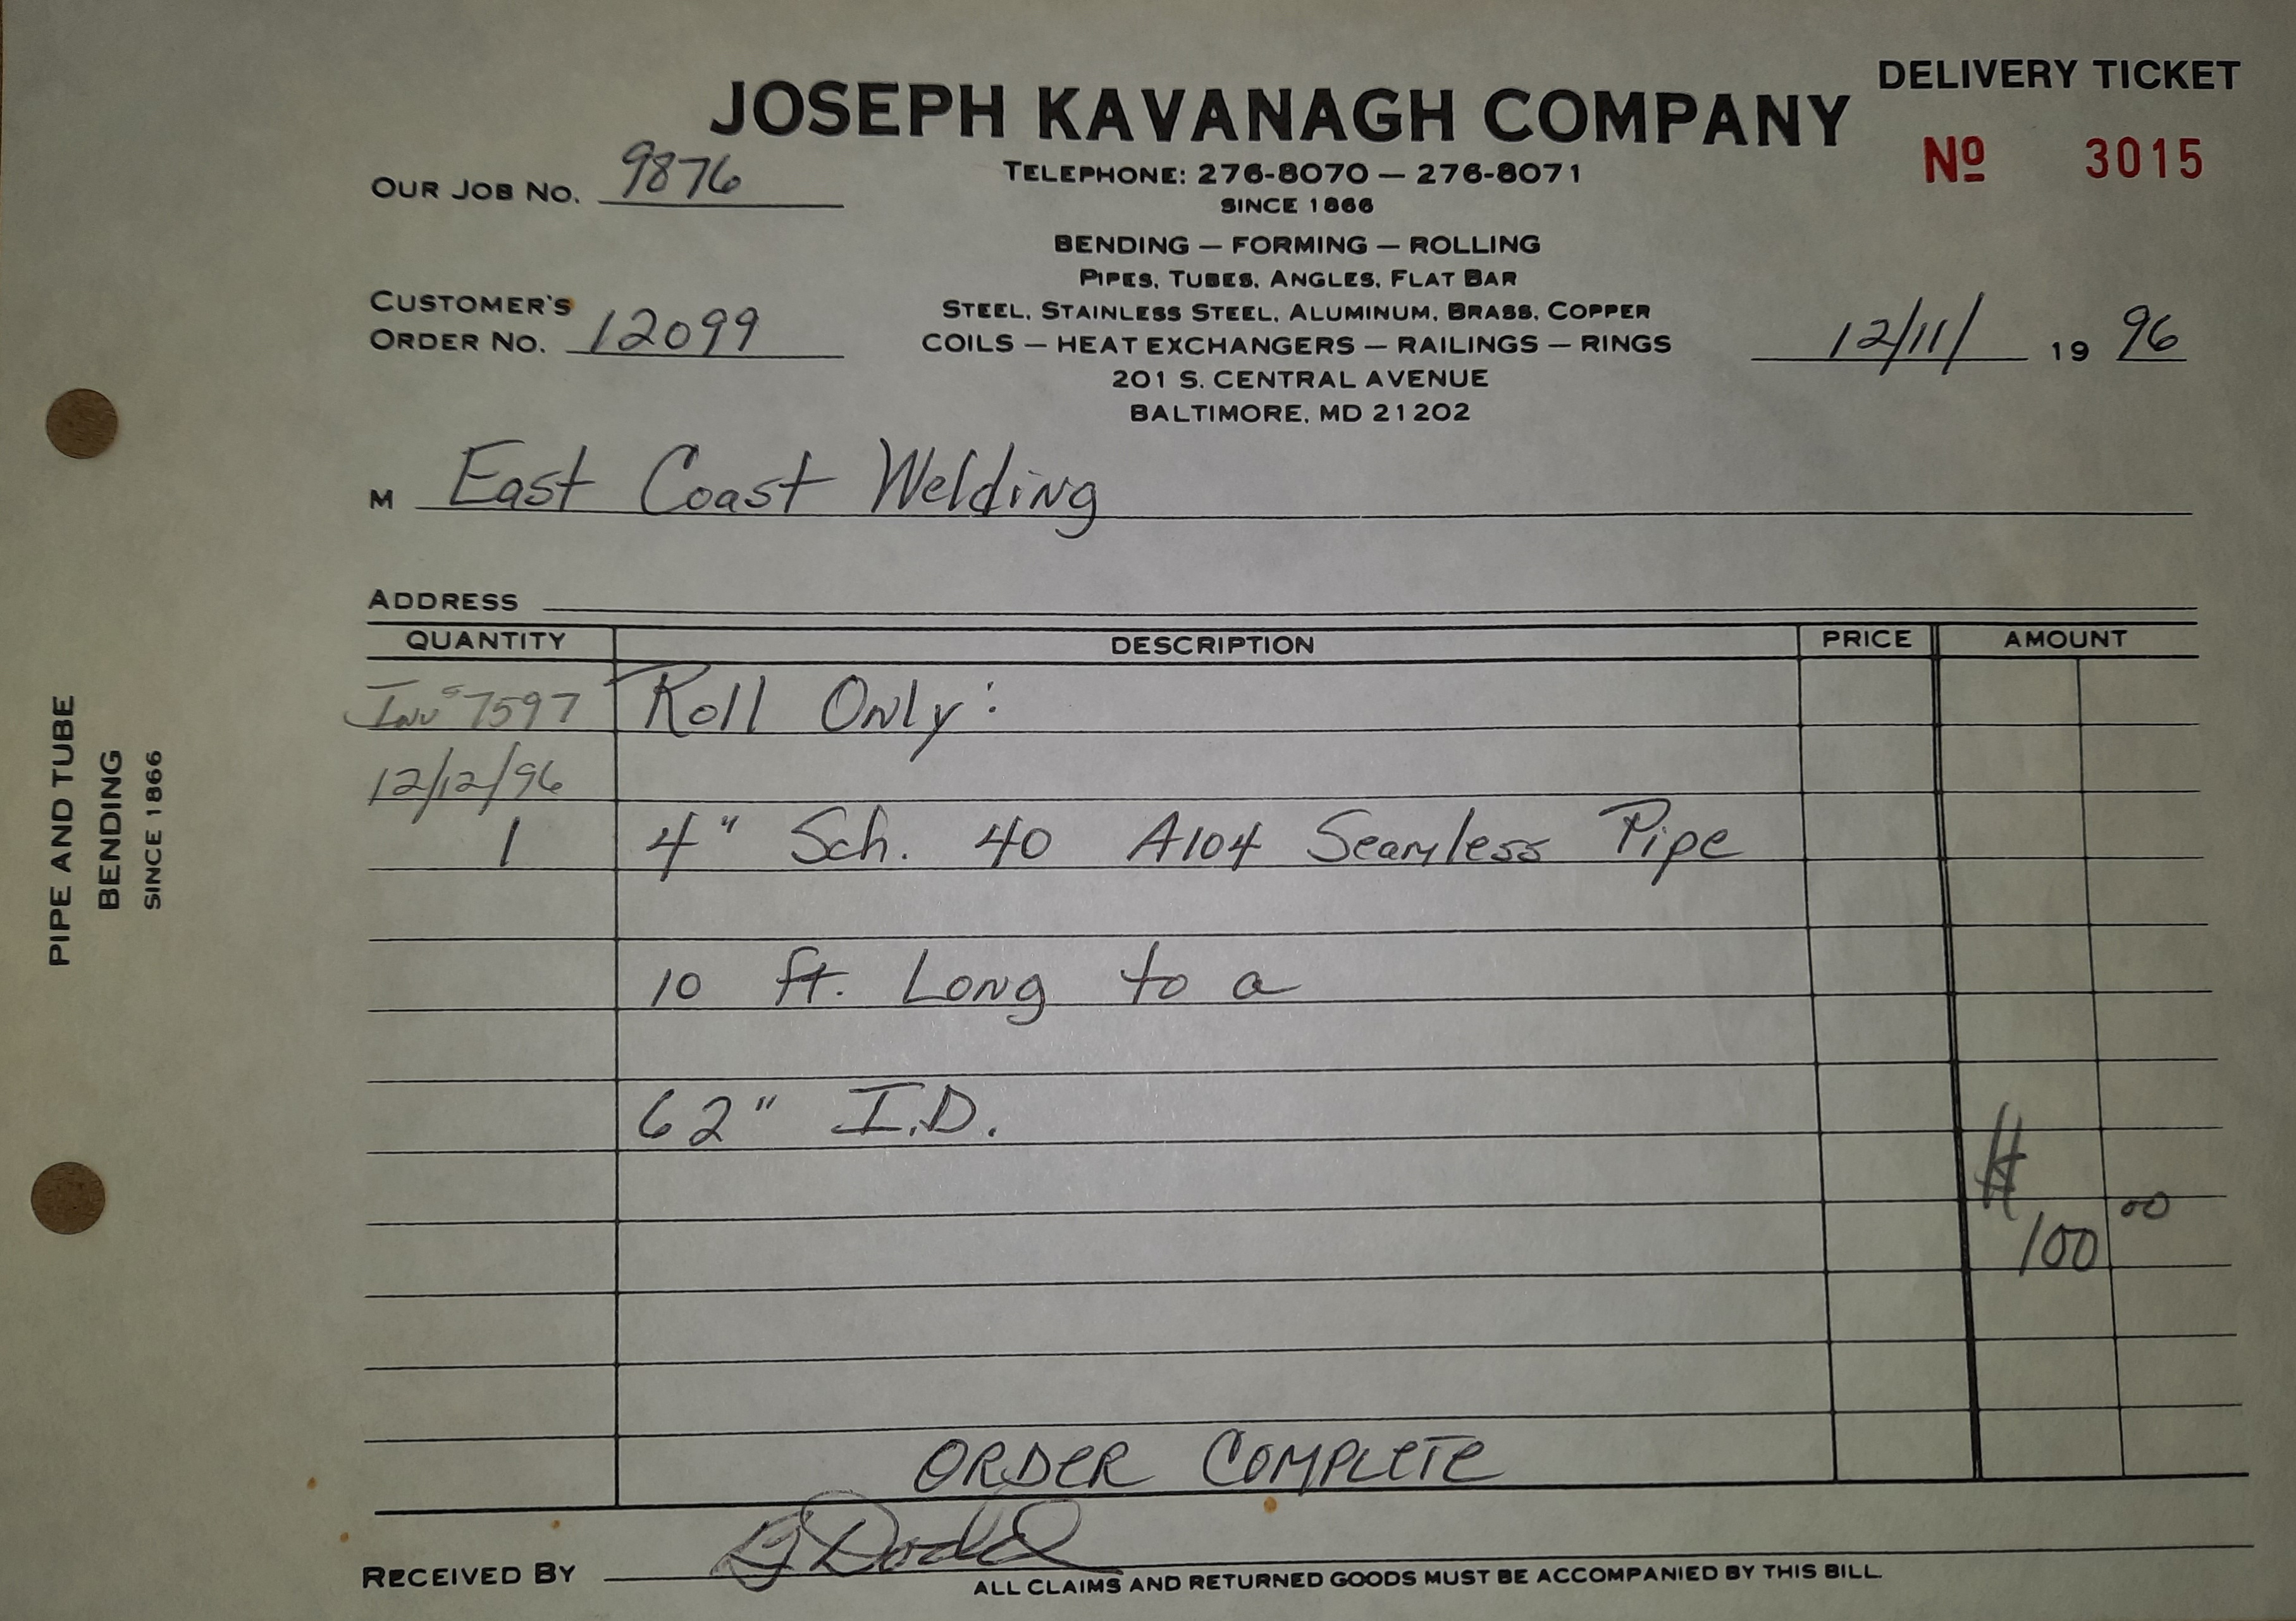 DELIVERY TICKET
JOSEPH KAVANAGH COMPANY
Nº 3015
OUR JOB NO. 9876
TELEPHONE: 276-8070 — 276-8071
SINCE 1866
BENDING — FORMING — ROLLING
PIPES, TUBES, ANGLES, FLAT BAR
STEEL, STAINLESS STEEL, ALUMINUM, BRASS, COPPER
COILS — HEAT EXCHANGERS — RAILINGS — RINGS
201 S. CENTRAL AVENUE
BALTIMORE, MD 21202
CUSTOMER'S
ORDER NO. 12099
12/11/ 19 96
M East Coast Welding
ADDRESS
QUANTITY DESCRIPTION PRICE AMOUNT
Inv # 7597 Roll Only:
12/12/96
1 4" Sch. 40 A104 Seamless Pipe
10 ft. Long to a
62" I.D.
$
100 00
ORDER COMPLETE
RECEIVED BY
ALL CLAIMS AND RETURNED GOODS MUST BE ACCOMPANIED BY THIS BILL
PIPE AND TUBE
BENDING
SINCE 1866